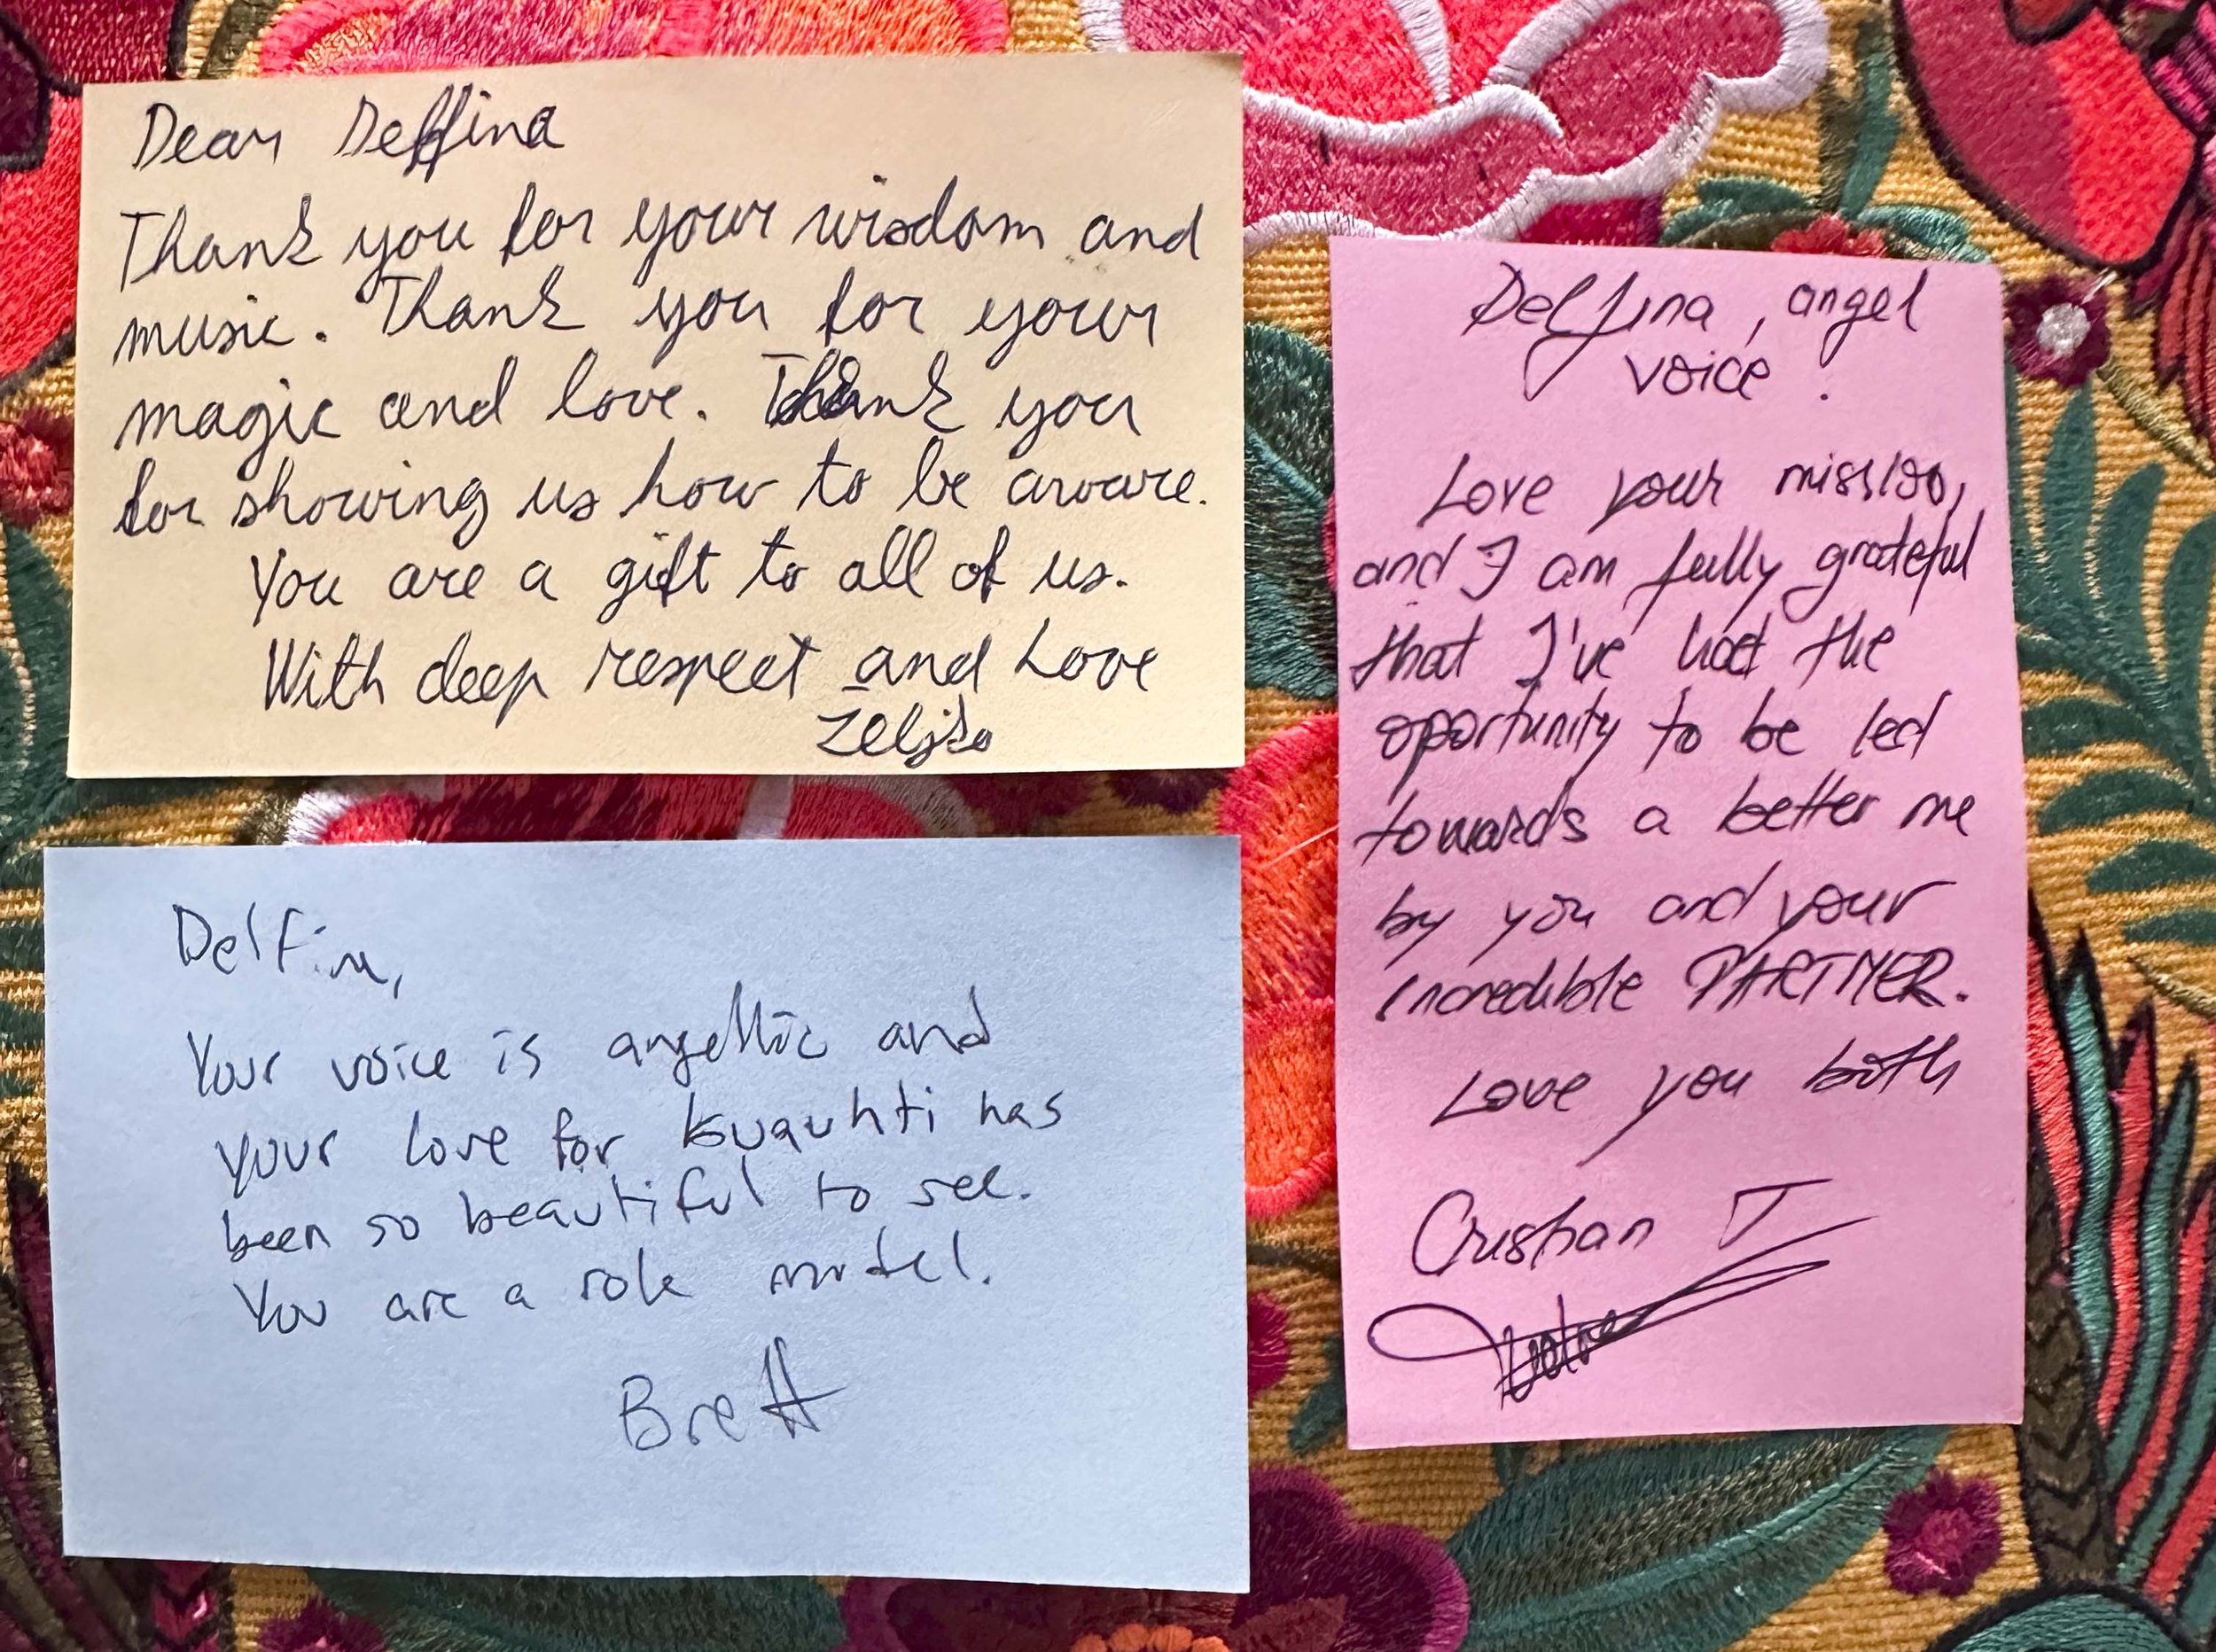 Dear Delfina
Thank you for your wisdom and
music. Thank you for your
magic and love. Thank you
for showing us how to be aware.
You are a gift to all of us.
With deep respect and Love
Zeljko
Delfina,
Your voice is angellic and
your love for Kuauhti has
been so beautiful to see.
You are a role model.
Brett
Delfina, angel
voice.
Love your missioo,
and I am fully grateful
that I've had the
oportunity to be led
towards a better me
by you and your
incredible PARTNER.
Love you both
Cristian T